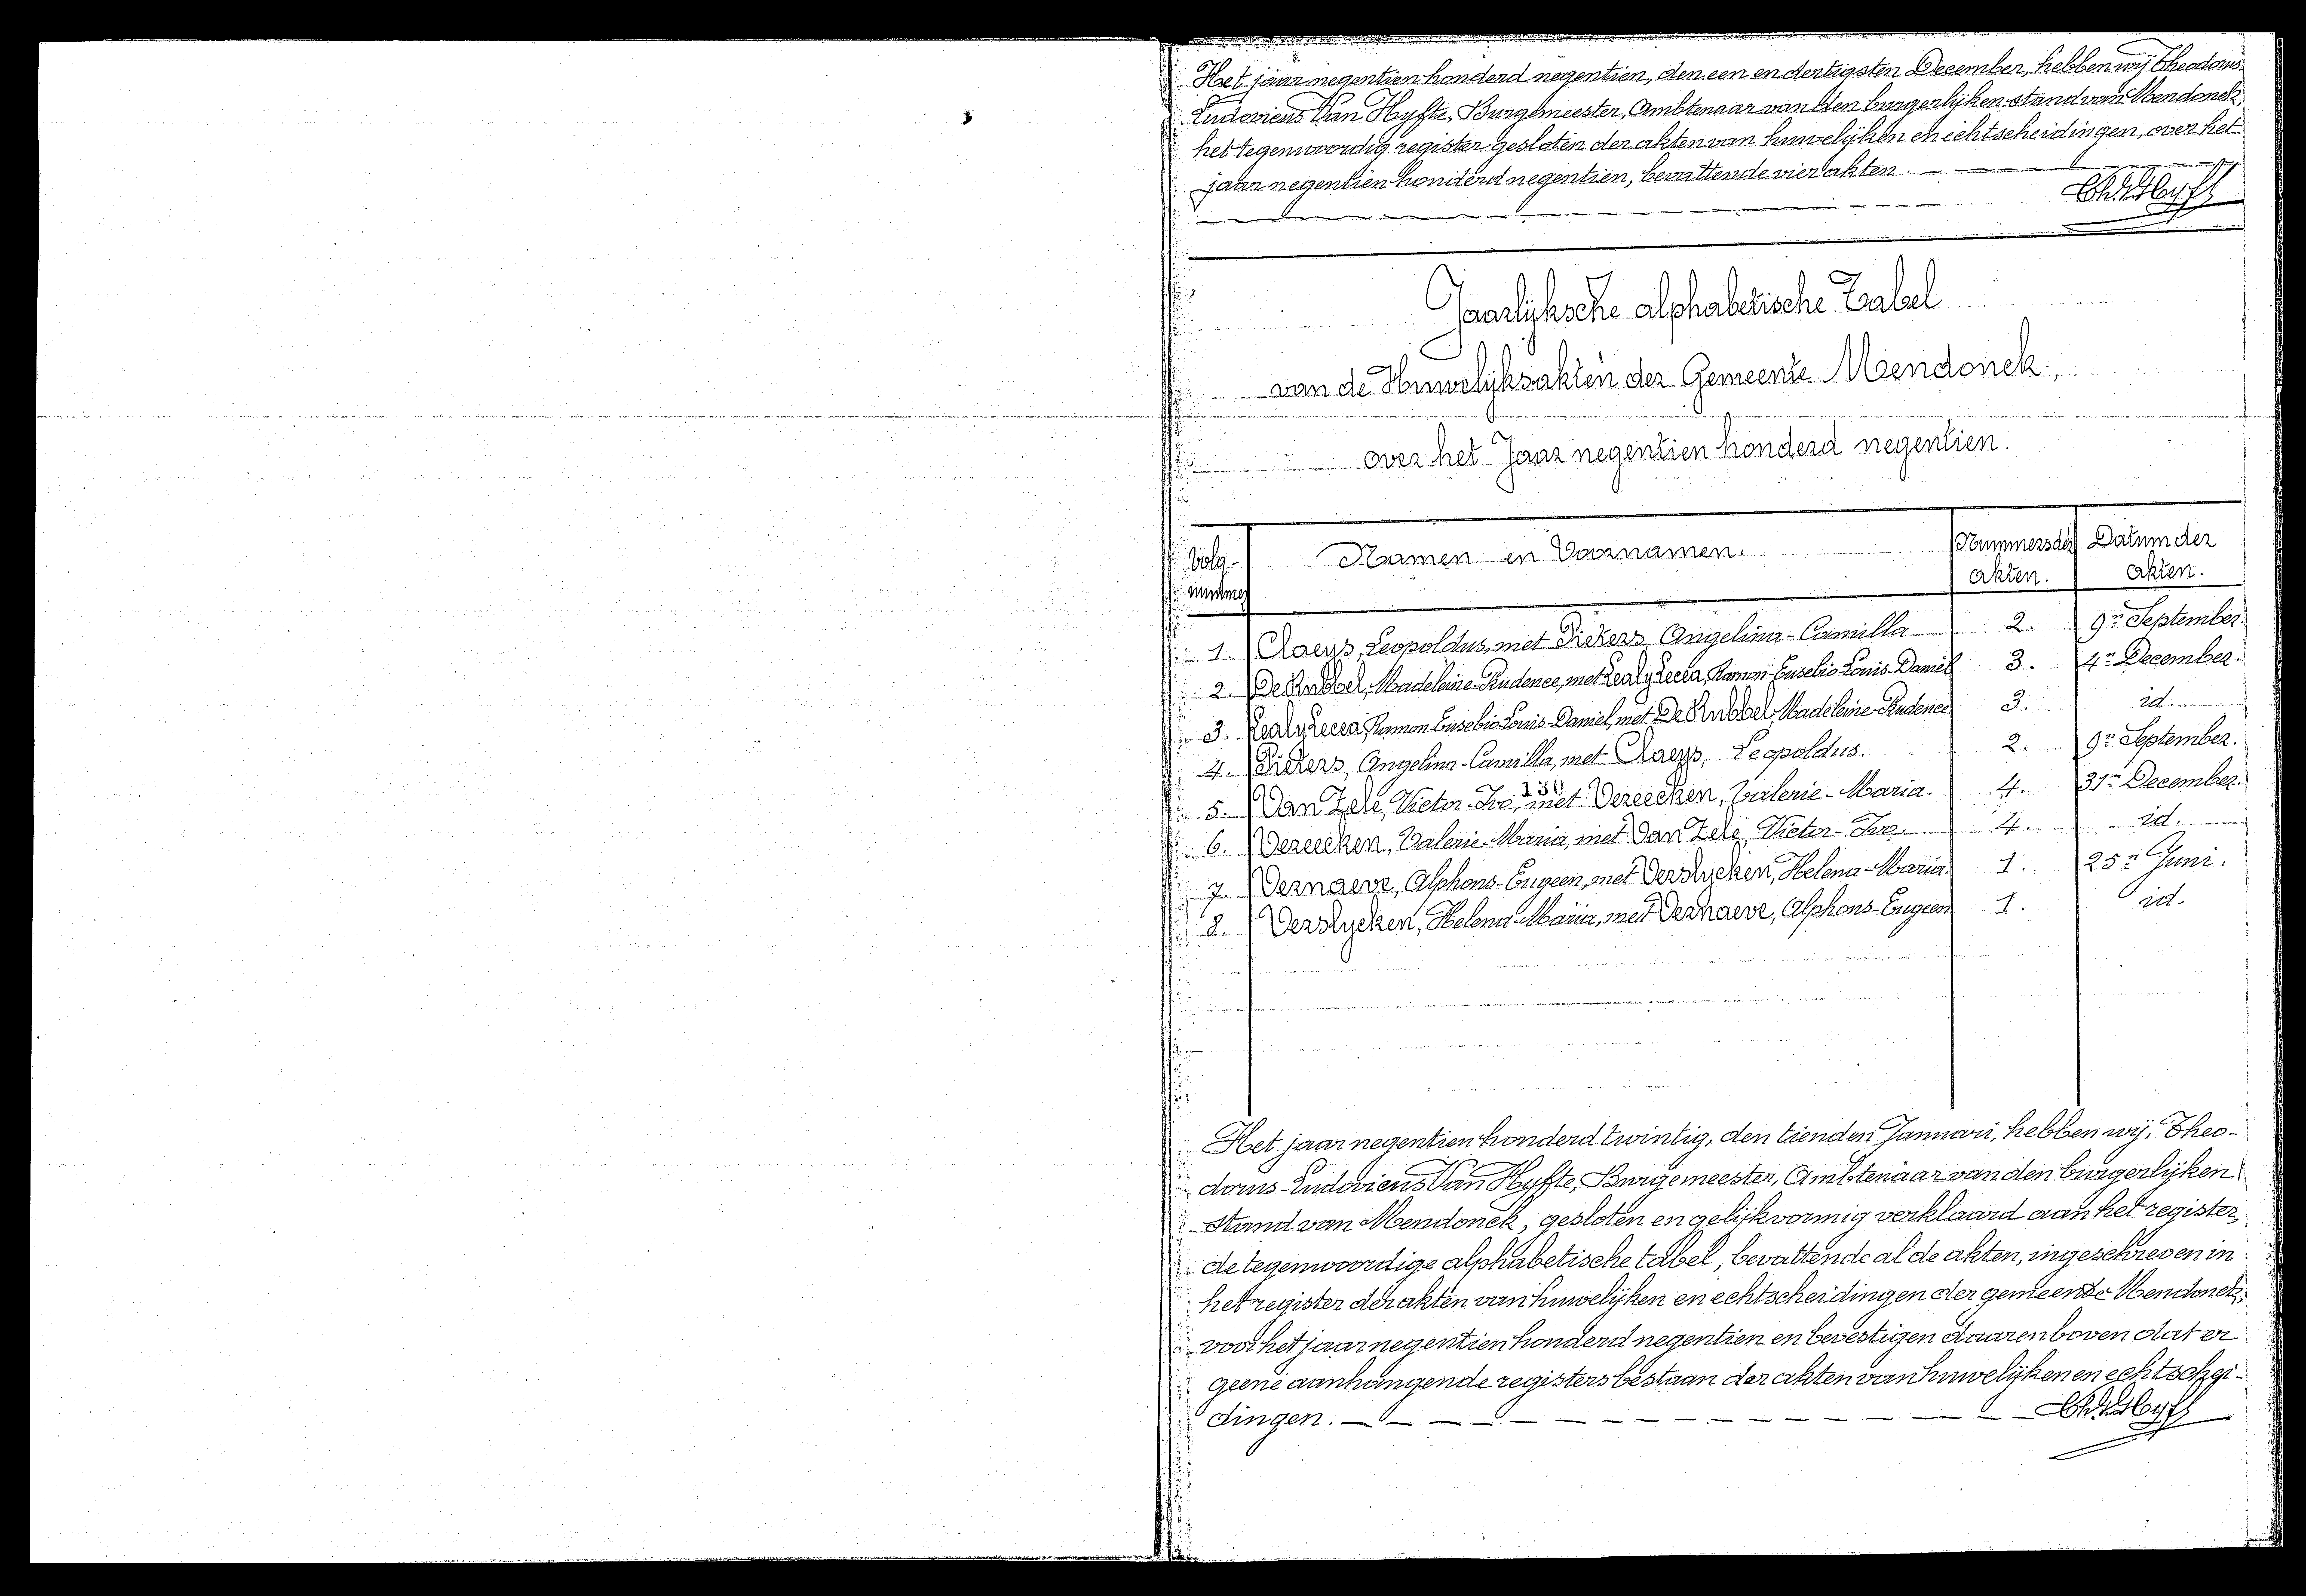 Het jaar negentien honderd negentien, den een en dertigsten December, hebben wij Theodorus
Ludovicus Van Hyfte, Burgemeester, Ambtenaar van den burgerlijken stand van Mendonck,
het tegenwoordig register gesloten der akten van huwelijken en echtscheidingen, over het
jaar negentien honderd negentien, bevattende vier akten.
Jaarlijksche alphabetische Tabel
van de Huwelijksakten der Gemeente Mendonck,
over het Jaar negentien honderd negentien.
Volg-nummer Namen en Voornamen. Nummers der akten. Datum der akten.
1. Claeys, Leopoldus, met Pieters Angelina-Camilla 2. 9n September.
2. De Rubbel, Madeleine-Rudence, met Ramon-Eusebio-Louis-Daniël 3. 4n December.
3. Ramon-Eusebio-Louis-Daniel, met De Rubbel, Madeleine-Rudence 3. id.
4. Pieters, Angelina-Camilla, met Claeys, Leopoldus. 2. 9n September.
130
5. Van Zele, Victor-Ivo, met Vereecken, Valerie-Maria. 4. 31n December.
6. Vereecken, Valerie-Maria, met Van Zele, Victor-Ivo. 4. id.
7. Vernaeve, Alphons-Eugeen, met Verslycken, Helena-Maria. 1. 25n Juni.
8. Verslycken, Helena-Maria, met Vernaeve, Alphons-Eugeen 1. id.
Het jaar negentien honderd twintig, den tienden Januari, hebben wij, Theo-
dorus-Ludovicus Van Hyfte, Burgemeester, Ambtenaar van den burgerlijken
stand van Mendonck, gesloten en gelijkvormig verklaard aan het register,
de tegenwoordige alphabetische tabel, bevattende al de akten, ingeschreven in
het register der akten van huwelijken en echtscheidingen der gemeente Mendonck,
voor het jaar negentien honderd negentien en bevestigen daarenboven dat er
geene aanhangende registers bestaan der akten van huwelijken en echtschei-
dingen.